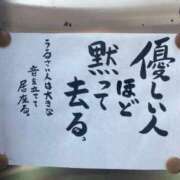 優しい人
ほど
黙って
去る。
うるさい人は大きな
音を立てて
居座る。